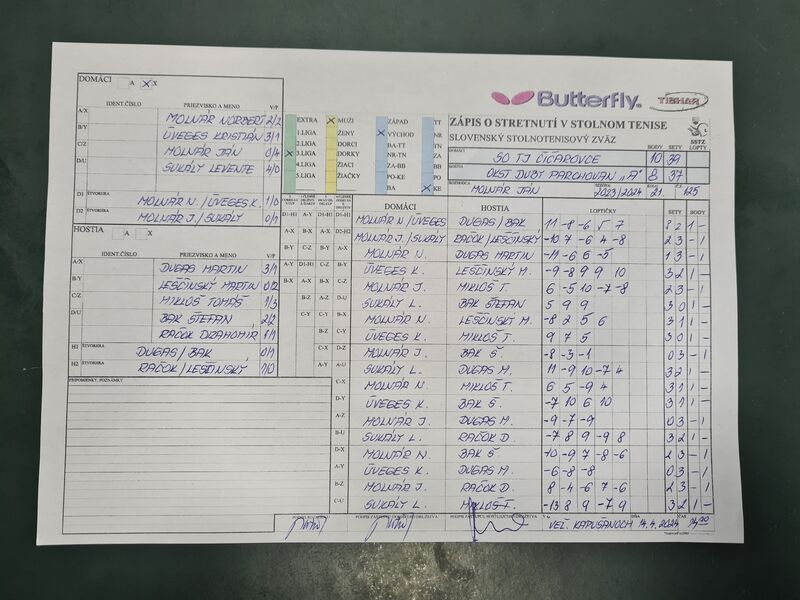 DOMÁCI A X
IDENT.ČÍSLO PRIEZVISKO A MENO V/P
A/X MOLNÁR NORBERT 2/2
B/Y ÜVEGES KRISTIÁN 3/1
C/Z MOLNÁR JÁN 0/4
D/U SUKÁLY LEVENTE 4/0
D1 ŠTVORHRA MOLNÁR N. / ÜVEGES K. 1/0
D2 ŠTVORHRA MOLNÁR J. / SUKÁLY 0/1
HOSTIA A X
IDENT.ČÍSLO PRIEZVISKO A MENO V/P
A/X DUGAS MARTIN 3/1
B/Y LEŠČINSKÝ MARTIN 0/2
C/Z MIKLOŠ TOMÁŠ 1/3
D/U BAK ŠTEFAN 2/2
RAČOK DRAHOMÍR 1/1
H1 ŠTVORHRA DUGAS / BAK 0/1
H2 ŠTVORHRA RAČOK / LEŠČINSKÝ 1/0
PRIPOMIENKY, POZNÁMKY
EXTRA
1.LIGA
2.LIGA
3.LIGA
4.LIGA
5.LIGA
MUŽI
ŽENY
DORCI
DORKY
ŽIACI
ŽIAČKY
ZÁPAD
VÝCHOD
BA-TT
NR-TN
ZA-BB
PO-KE
BA
TT
NR
TN
ZA
BB
PO
KE
Butterfly
TIBHAR
ZÁPIS O STRETNUTÍ V STOLNOM TENISE
SLOVENSKÝ STOLNOTENISOVÝ ZVÄZ
SSTZ
BODY SETY LOPTY
DOMÁCI ŠO TJ ČIČAROVCE 10 39
HOSTIA OKST DUBY PARCHOVAN "A" 8 37
ROZHODCA MOLNÁR JÁN SEZÓNA 2023/2024 KOLO 21. Č.Z. 125
DOMÁCI HOSTIA LOPTIČKY SETY BODY
MOLNÁR N. / ÜVEGES DUGAS / BAK 11 -8 -6 5 7 3 2 1 -
MOLNÁR J. / SUKÁLY RAČOK / LEŠČINSKÝ -10 7 -6 4 -8 2 3 - 1
MOLNÁR N. DUGAS MARTIN -11 -6 6 -5 1 3 - 1
ÜVEGES K. LEŠČINSKÝ M. -9 -8 9 9 10 3 2 1 -
MOLNÁR J. MIKLOŠ T. 6 -5 10 -7 -8 2 3 - 1
SUKÁLY L. BAK ŠTEFAN 5 9 9 3 0 1 -
MOLNÁR N. LEŠČINSKÝ M. -8 2 5 6 3 1 1 -
ÜVEGES K. MIKLOŠ T. 9 7 5 3 0 1 -
MOLNÁR J. BAK Š. -8 -3 -1 0 3 - 1
SUKÁLY L. DUGAS M. 11 -9 10 -7 4 3 2 1 -
MOLNÁR N. MIKLOŠ T. 6 5 -9 4 3 1 1 -
ÜVEGES K. BAK Š. -7 10 6 10 3 1 1 -
MOLNÁR J. DUGAS M. -9 -7 -9 0 3 - 1
SUKÁLY L. RAČOK D. -7 8 9 -9 8 3 2 1 -
MOLNÁR N. BAK Š 10 -9 7 -8 -6 2 3 - 1
ÜVEGES K. DUGAS M. -6 -8 -8 0 3 - 1
MOLNÁR J. RAČOK D. 8 -4 -6 7 -6 2 3 - 1
SUKÁLY L. MIKLOŠ T. -13 8 9 -7 9 3 2 1 -
V VEĽ. KAPUŠANOCH DŇA 14.4.2024 ČAS